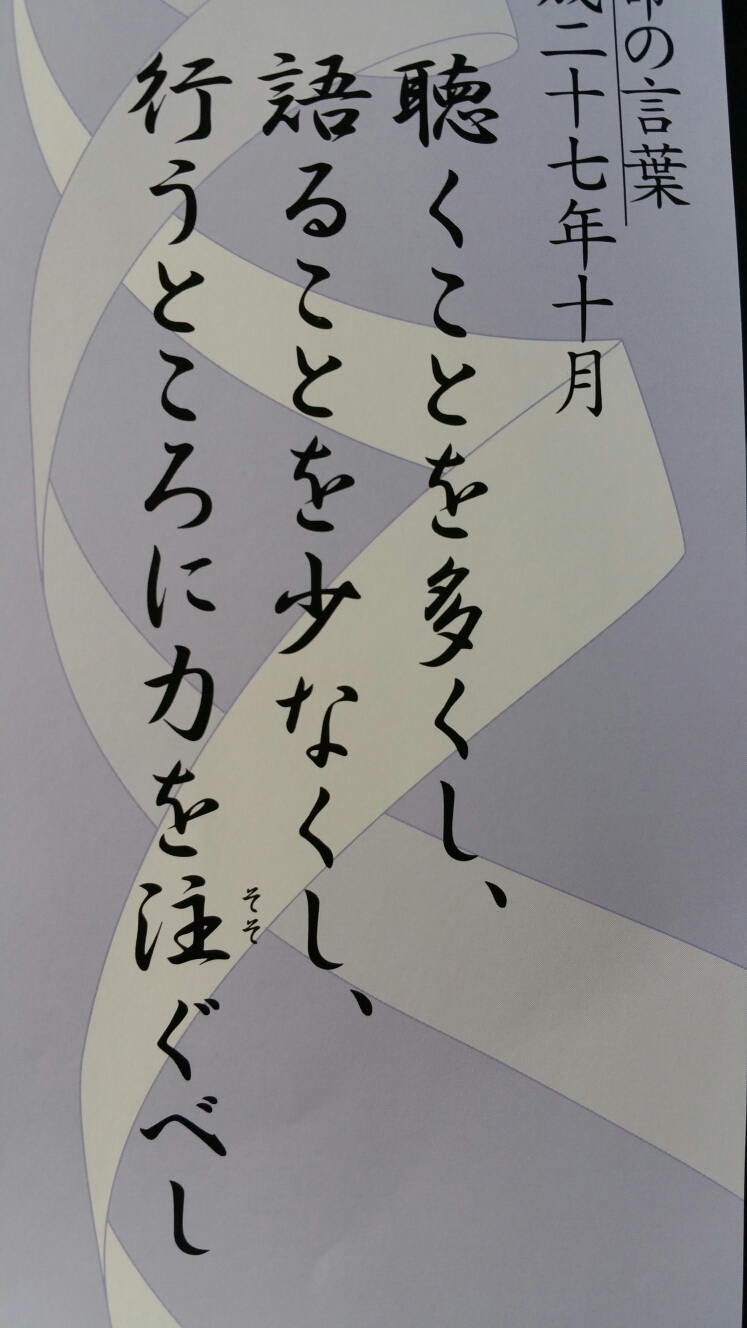 の言葉
二十七年十月
聴くことを多くし、
語ることを少なくし、
行うところに力を注ぐべし
そそ